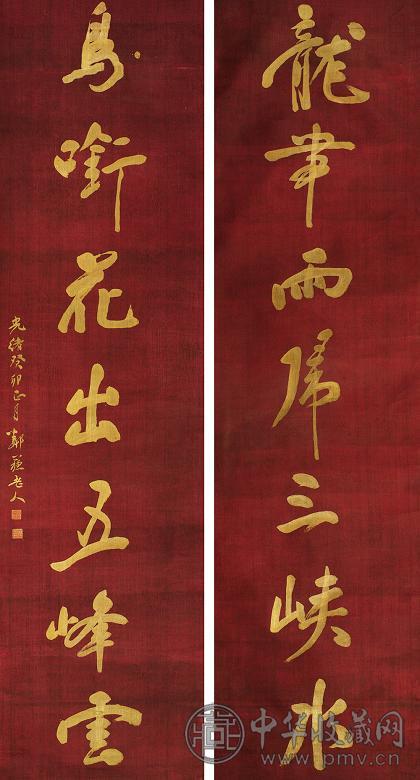 龍帶雨歸三峽水
鳥啣花出五峰雲
光緒癸卯正月 鄰蘇老人
中华收藏网
www.pmv.cn